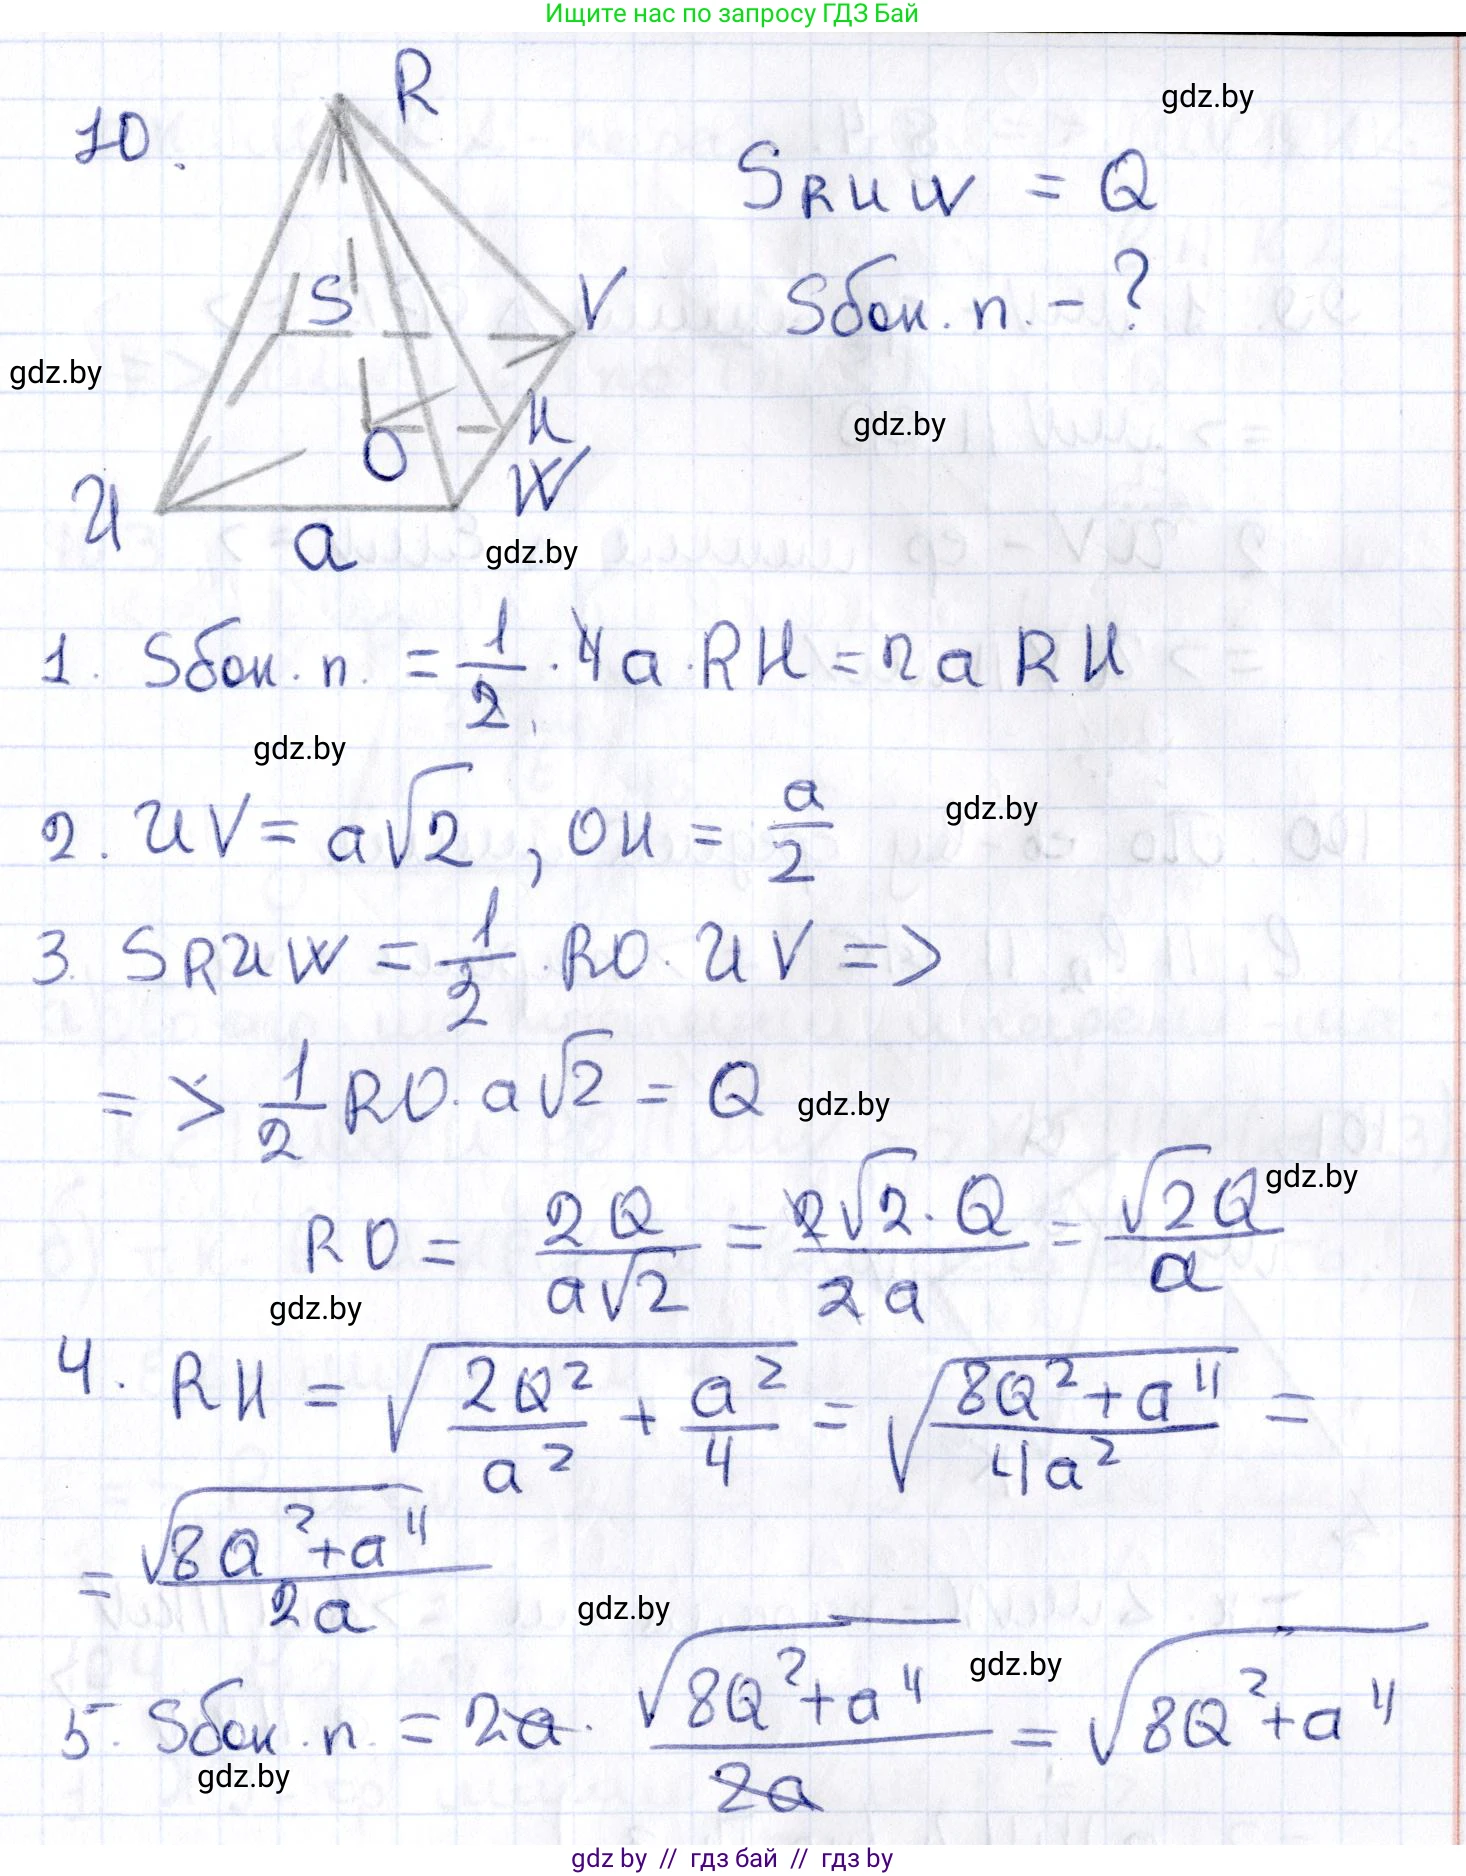 Ищите нас по запросу ГДЗ Бай
10.
R
gdz.by
S RUW = Q
S
V
Sбок. п. - ?
gdz.by
gdz.by
H
O
U
W
a
gdz.by
1. Sбок. п. = 1/2 · 4a · RH = 2a RH
gdz.by
2. UV = a√2 , OH = a/2
gdz.by
3. S RUW = 1/2 · RO · UV =>
=> 1/2 RO · a√2 = Q
gdz.by
RO = 2Q/(a√2) = (2√2 · Q)/(2a) = √2Q/a
gdz.by
gdz.by
4. RH = √(2Q²/a² + a²/4) = √((8Q² + a⁴)/(4a²)) =
= √(8Q² + a⁴)/(2a)
gdz.by
gdz.by
5. Sбок. п. = 2a · √(8Q² + a⁴)/(2a) = √(8Q² + a⁴)
gdz.by
gdz by // гдз бай // гдз by